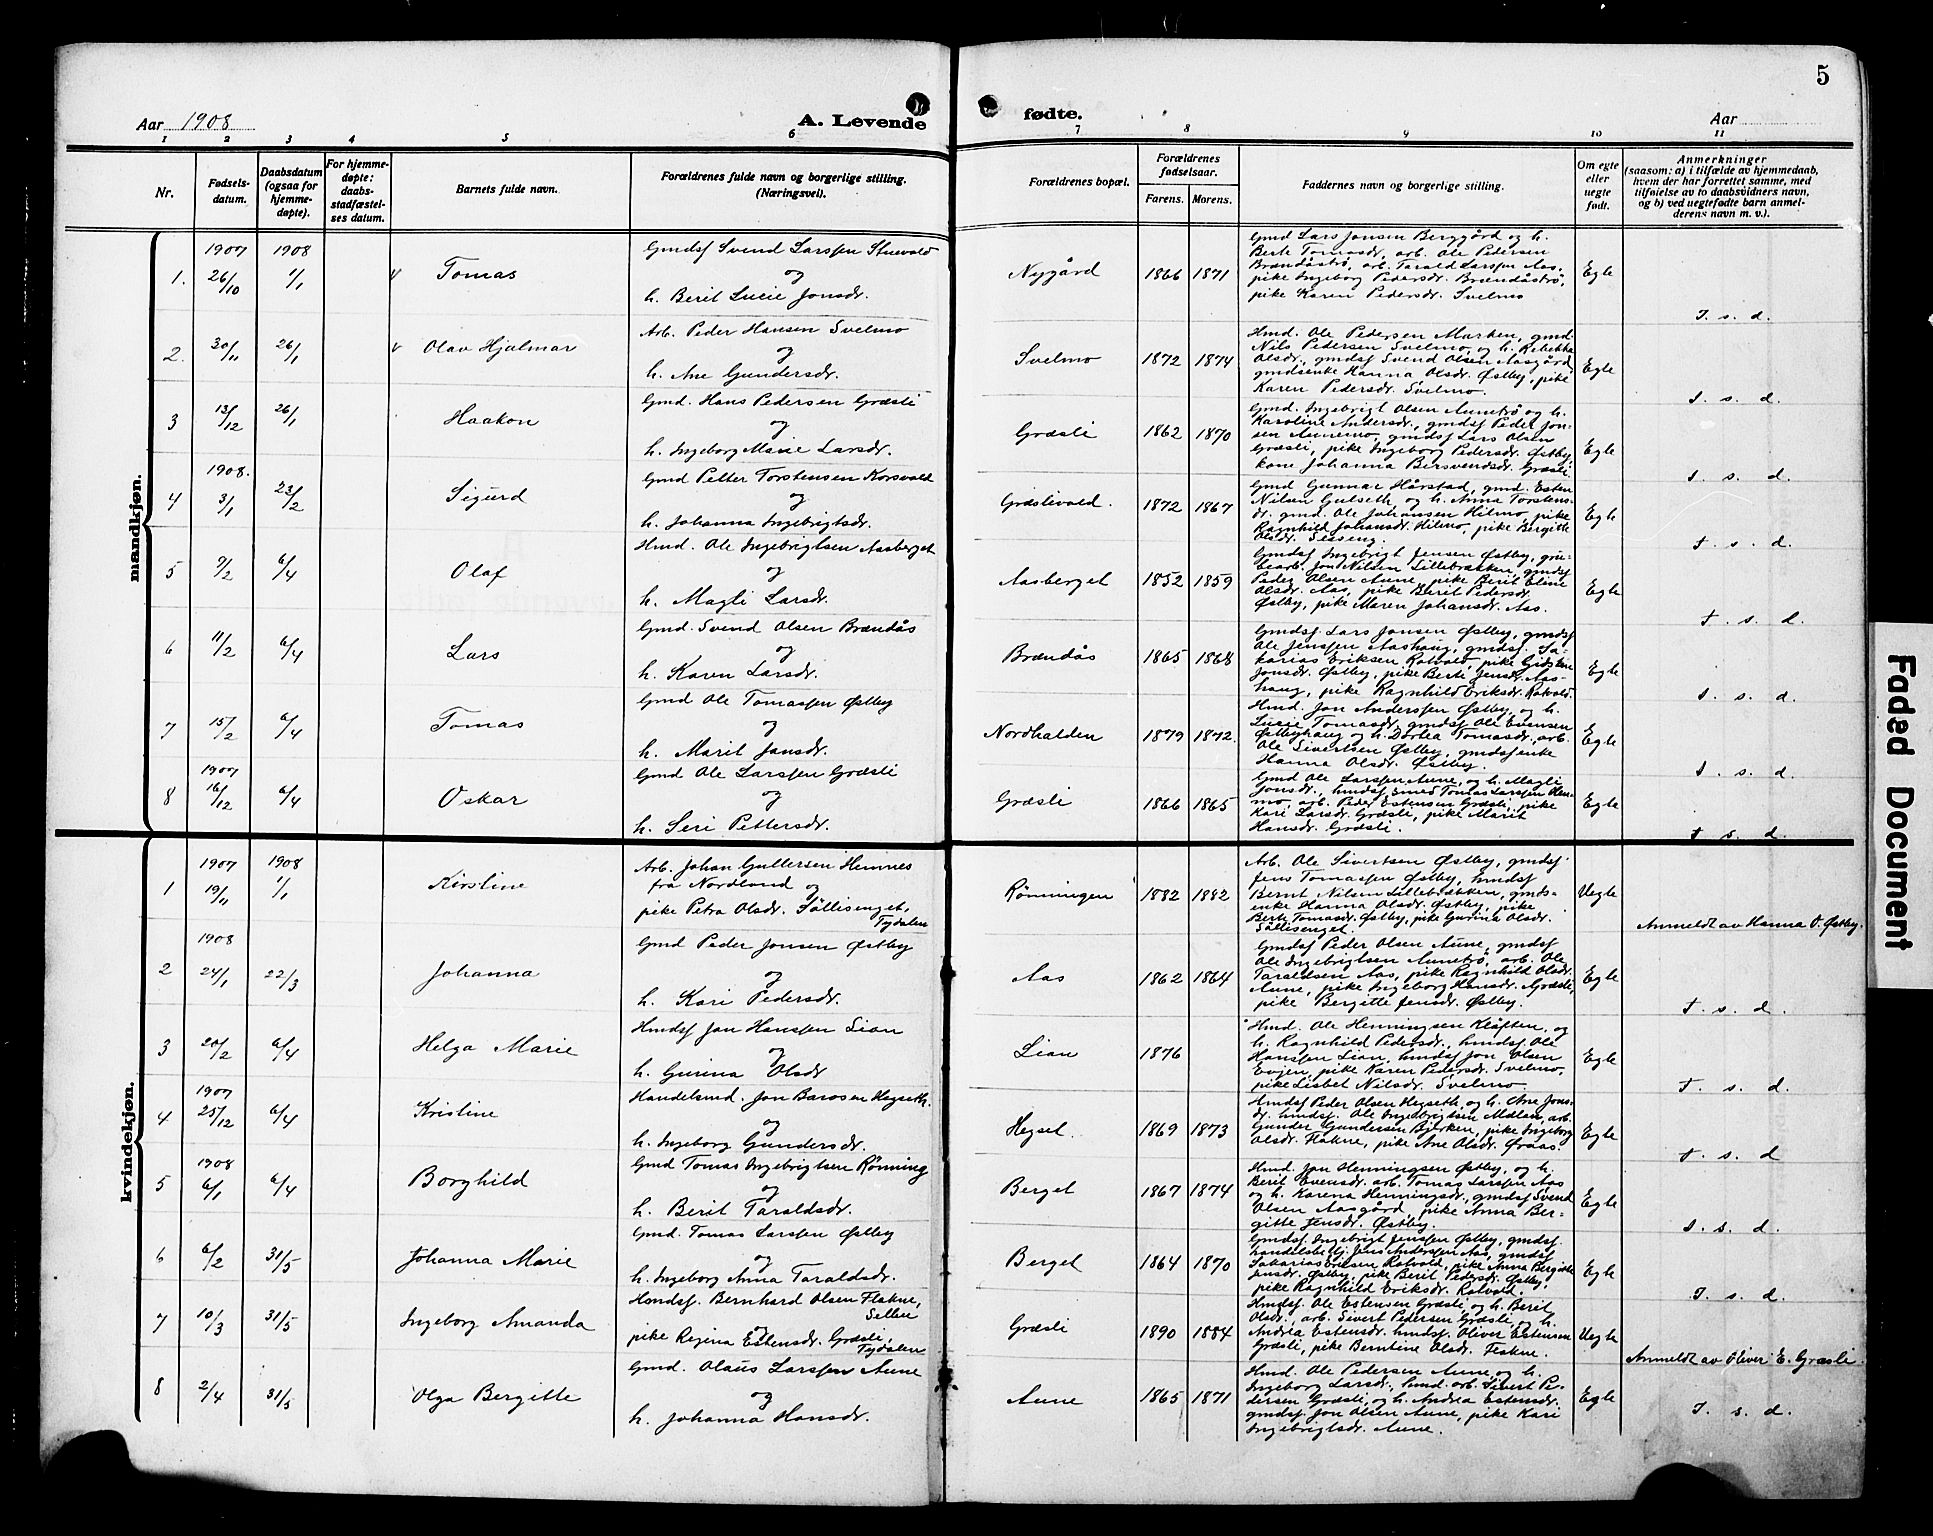 5
Aar 1908
A. Levende
fødte.
Aar
1 2 3 4 5 6 7 8 9 10 11
Nr.
Fødsels-
datum.
Daabsdatum
(ogsaa for
hjemme-
døpte).
For hjemme-
døpte:
daabs-
stadfæstel-
ses datum.
Barnets fulde navn.
Forældrenes fulde navn og borgerlige stilling.
(Næringsvei).
Forældrenes bopæl.
Forældrenes
fødselsaar.
Farens. Morens.
Faddernes navn og borgerlige stilling.
Om egte
eller
uegte
født.
Anmerkninger
(saasom: a) i tilfælde av hjemmedaab,
hvem der har forrettet samme, med
tilføielse av to daabsvidners navn,
og b) ved uegtefødte barn anmel-
derens navn m. v.).
mandkjøn.
1907 1908
1. 26/10 1/1 Tomas
Gmdsf Svend Larssen Stuevold
og
h. Berit Lucie Jonsdr.
Nygård 1866 1871
Gmd Lars Jonsen Berggård og h.
Berte Tomasdr, arb. Ole Pedersen
Brændåstrø, arb. Tarald Larssen Aas,
pike Ingeborg Pedersdr. Brændåstrø,
pike Karen Pedersdr. Svelmo
Egte
T. s. d.
2. 30/11 26/1 Olav Hjalmar
Arb. Peder Hansen Svelmo
og
h. Ane Gundersdr.
Svelmo 1872 1874
Hmd. Ole Pedersen Marken, gmd
Nils Pedersen Svelmo, og h. Rebekka
Olsdr., gmdsf Svend Olsen Aasgård,
gmdsenke Hanna Olsdr. Østby, pike
Karen Pedersdr. Svelmo.
Egte
T. s. d.
3 13/12 26/1 Haakon
Gmd. Hans Pedersen Græsli
og
h. Ingeborg Marie Larsdr.
Græsli 1862 1870
Gmd. Ingebrigt Olsen Aunetrø og h.
Karoline Andersdr., gmdsf Peder Jon-
sen Aunemo, gmdsf Lars Olsen
Græsli, pike Ingeborg Pedersdr. Østby
kone Johanna Bersvendsdr. Græsli
Egte
T. s. d.
1908.
4 3/1 23/2 Sigurd
Gmd Petter Torstensen Korsvold
og
h. Johanna Ingebrigtsdr.
Græslivold. 1872 1867
Gmd Gunnar Hårstad, gmd. Esten
Nilsen Gulseth og h. Anna Torstens-
dr. gmd. Ole Johansen Hilmo, pike
Ragnhild Johansdr. Hilmo, pike Bergitte
Olsdr.
Egte
T. s. d.
5 9/2 6/4 Olaf
Hmd. Ole Ingebrigtsen Aasberget
og
h. Magli Larsdr.
Aasberget 1852 1859
Gmdsf Ingebrigt Jensen Østby, gru-
bearb. Jon Nilsen Lillebækken, gmdsf
Peder Olsen Aune, pike Berit Eline
Olsdr. Aas, pike Berit Pedersdr.
Østby, pike Maren Johansdr. Aas.
Egte
T. s. d.
6 11/2 6/4 Lars
Gmd. Svend Olsen Brændås
og
h. Karen Larsdr.
Brændås 1865 1868
Gmdsf. Lars Jonsen Østby, gmdsf
Ole Jenssen Aashaug, gmdsf. Sa-
karias Eriksen Rotvold, pike Gidsken
Jonsdr. Østby, pike Berte Jensdr. Aas-
haug, pike Ragnhild Eriksdr. Rotvold.
Egte
T. s. d.
7 15/2 6/4 Tomas
Gmd Ole Tomassen Østby
og
h. Marit Jonsdr.
Nordhalden 1879 1872.
Hmd. Jon Anderssen Østby, og h.
Lucie Tomasdr, gmdsf Ole Evensen
Østbyhaug og h. Dortea Tomasdr, arb.
Ole Sivertsen Østby, gmdsfenke
Hanna Olsdr. Østby.
Egte
T. s. d.
1907
8 16/12 6/4 Oskar
Gmd Ole Larssen Græsli
og
h. Seri Pettersdr.
Græsli 1866 1865
Gmd Ole Larssen Aune, og h. Magli
Jonsdr., hmdsf Smed Tomas Larssen Hen-
mo, arb. Peder Estensen Græsli, pike
Kari Larsdr. Græsli, pike Marit
Hansdr. Græsli.
Egte
T. s. d.
kvindekjøn.
1907 1908
1 19/11 1/1 Kirstine
Arb. Johan Gullersen Hemnes
fra Nordland og
pike Petra Olsdr. Sællisenget,
Tydalen
Rønningen 1882 1882
Arb. Ole Sivertsen Østby, gmdsf.
Jens Tomassen Østby, hmdsf
Bernt Nilsen Lillebækken, gmds-
enke Hanna Olsdr. Østby, pike
Berte Tomasdr. Østby, pike Gurina Olsdr.
Sællisenget.
Uegte
Anmeldt av Hanna O. Østby.
1908
2 24/1 22/3 Johanna
Gmd Peder Jonsen Østby
og
h. Kari Pedersdr.
Aas 1862 1864
Gmdsf Peder Olsen Aune, gmdsf
Ole Ingebrigtsen Aunetrø, arb. Ole
Taraldsen Aas, pike Ragnhild Olsdr.
Aune, pike Ingeborg Hansdr. Græsli,
pike Bergitte Jensdr. Østby.
Egte
T. s. d.
3 20/2 6/4 Helga Marie
Hmdsf Jon Hanssen Lian
og
h. Gurina Olsdr
Lian 1876
Hmd. Ole Henningsen Kløften, og
h. Ragnhild Pedersdr., hmdsf Ole
Hanssen Lian, hmdsf Jon Olsen
Evjen, pike Karen Pedersdr. Svelmo,
pike Lisbet Nilsdr. Svelmo.
Egte
T. s. d.
1907
4 25/12 6/4 Kristine
Handelsmd. Jon Barosen Hegseth.
og
h. Ingeborg Gundersdr.
Hegset. 1869 1873
Hmdsf Peder Olsen Hegseth, og h. Ane Jons-
dr. hmdsf. Ole Ingebrigtsen Mælen, arb.
Gunder Gundersen Bjerken, pike Ingeborg
Olsdr. Flakne, pike Ane Olsdr. Græs.
Egte
T. s. d
1908
5 6/1 6/4 Borghild
Gmd Tomas Ingebrigtsen Rønning
og
h. Berit Taraldsdr.
Berget 1867 1874
Hmd. Jon Henningsen Østby, og h.
Berit Evensdr. arb. Tomas Larssen Aas
og h. Karena Henningsdr, gmdsf Svend
Olsen Aasgård, pike Anna Ber-
gitte Jensdr. Østby.
Egte
T. s. d.
6 6/2 31/5 Johanna Marie
Gmd. Tomas Larssen Østby
og
h. Ingeborg Anna Taraldsdr.
Berget 1864 1870
Gmdsf. Ingebrigt Jenssen Østby, gmdsf.
handelsbetj. Jens Anderssen Aas, gmdsf
Sakarias Eriksen Rotvold, pike Anna Bergitte
Jensdr. Østby, pike Berit Pedersdr. Østby,
pike Ragnhild Eriksdr. Rotvold.
Egte
T. s. d.
7 10/3 31/5 Ingeborg Amanda
Hmdsf. Bernhard Olsen Flakne,
Selbu
og
pike Regina Estensdr. Græsli,
Tydalen
Græsli 1890 1884
Hmdsf. Ole Estensen Græsli og h. Berit
Olsdr., arb. Sivert Pedersen Græsli, og h.
Andrea Estensdr. hmdsf. Oliver Estensen
Græsli, pike Berntine Olsdr. Flakne.
Uegte
Anmeldt av Oliver E. Græsli.
8 2/4 31/5 Olga Bergitte
Gmd. Olaus Larssen Aune
og
h. Johanna Hansdr.
Aune 1865 1871
Hmd. Ole Pedersen Aune, og h.
Ingeborg Larsdr., hmd. arb. Sivert Pe-
dersen Græsli, og h. Andrea Estensdr.
gmdsf. Jon Olsen Aune, pike Kari
Ingebrigtsdr. Aune.
Egte
T. s. d.
Faded Document